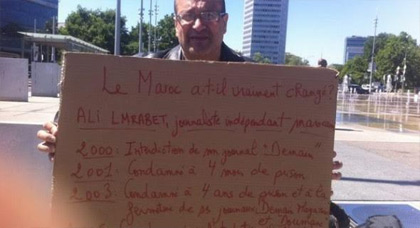 Le Maroc a-t-il vraiment changé?
ALI LMRABET, journaliste indépendant marocain
2000: Interdiction de mon journal "Demain"
2001: Condamné à 4 mois de prison
2003: Condamné à 4 ans de prison et à la
fermeture de ses journaux Demain Magazine
et Douman